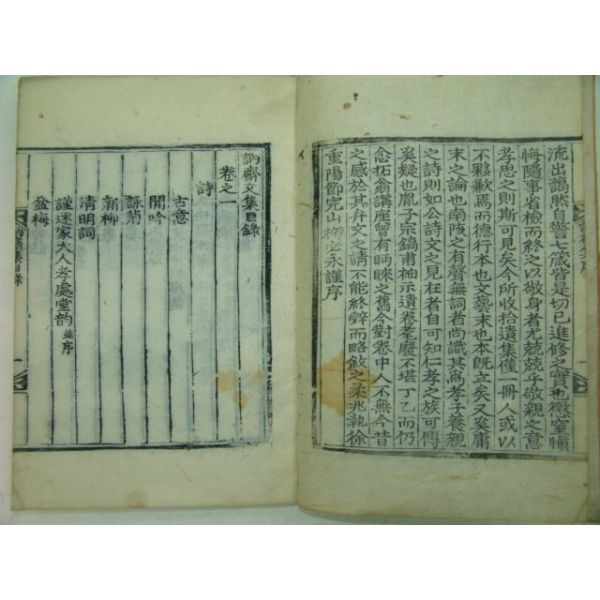 流出謁然自警七箴皆是切己進修之實也懲窒愼
悔隨事省檢而終之以敬身者尤兢兢乎敬親之意
孝思之則斯可見矣今所收拾遺集僅一冊人或以
不夥歉焉而德行本也文藝末也本旣立矣又奚庸
末之論也南陔之有聲無詞者尚識其爲孝子養親
之詩則如公詩文之見在者自可知仁孝之族可傳
矣疑也胤子宗鎬甫袖示遺卷耄廢不堪丁乙而仍
念拓翁講座曾有眄睞之舊今對卷中人不無今昔
之感於其弁文之請不能終辭而略敘之柔兆執徐
重陽節完山柳必永謹序
訥齋文集目錄
卷之一
詩
古意
閒吟
詠菊
新柳
淸明詞
謹述家大人孝處堂韵 並序
盆梅